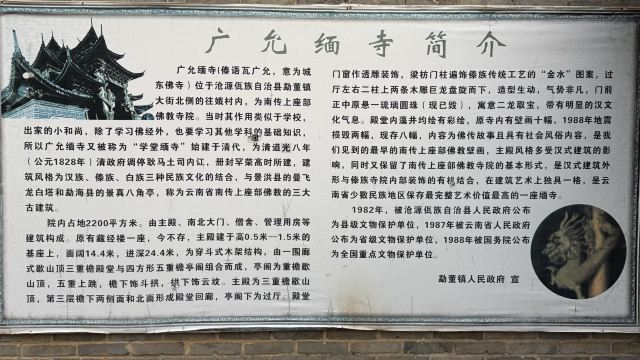 广允缅寺简介
广允缅寺(傣语瓦广允，意为城
东佛寺）位于沧源佤族自治县勐董镇
大街北侧的往娥村内，为南传上座部
佛教寺院。当时其作用类似于学校，
出家的小和尚，除了学习佛经外，也要学习其他学科的基础知识，
所以广允缅寺又被称为“学堂缅寺”始建于清代，为清道光八年
（公元1828年）清政府调停耿马土司内讧，册封罕荣高时所建，建
筑风格为汉族、傣族、白族三种民族文化的结合，与景洪县的曼飞
龙白塔和勐海县的景真八角亭，称为云南省南传上座部佛教的三大
古建筑。
院内占地2200平方米。由主殿、南北大门、僧舍、管理用房等
建筑构成。原有藏经楼一座，今不存，主殿建于高0.5米—1.5米的
基座上，面阔14.4米，进深24.4米，为穿斗式木架结构，由一围廊
式歇山顶三重檐殿堂与四方形五重檐亭阁组合而成，亭阁为重檐歇
山顶，五重上跳，檐下饰斗拱，拱下饰云纹。主殿为三重檐歇山
顶，第三层檐下两侧面和北面形成殿堂回廊，亭阁下为过厅。殿堂
门窗作透雕装饰，梁枋门柱遍饰傣族传统工艺的“金水”图案，过
厅左右二柱上两条木雕巨龙盘旋而下，造型生动，气势非凡，门前
正中原悬一琉璃圆珠（现已毁），寓意二龙取宝，带有明显的汉文
化气息。殿堂内藻井均绘有彩绘，原寺内有壁画十幅，1988年地震
损毁两幅，现存八幅，内容为佛传故事且具有社会风俗内容，是我
们见到的最早的南传上座部佛教壁画，主殿风格多受汉式建筑的影
响，同时又保留了南传上座部佛教寺院的基本形式，是汉式建筑外
形与傣族寺院内部装饰的有机结合，在建筑艺术上独具一格，是云
南省少数民族地区保存最完整艺术价值最高的一座缅寺。
1982年，被沧源佤族自治县人民政府公布
为县级文物保护单位，1987年被云南省人民政府
公布为省级文物保护单位，1988年被国务院公布
为全国重点文物保护单位。
勐董镇人民政府 宣